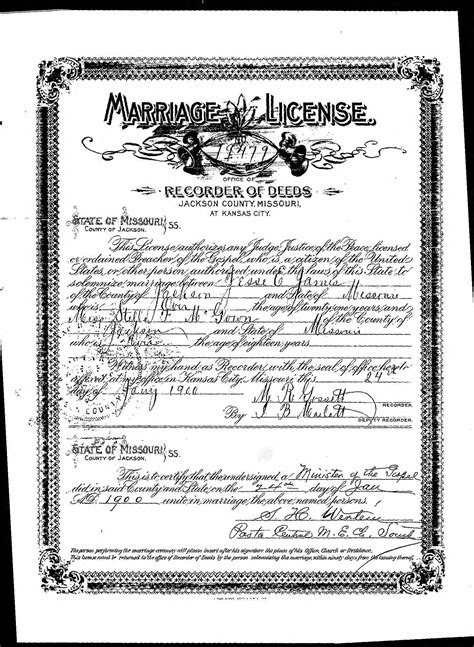 MARRIAGE LICENSE.
OFFICE OF
RECORDER OF DEEDS
JACKSON COUNTY, MISSOURI,
AT KANSAS CITY.
STATE OF MISSOURI, SS.
COUNTY OF JACKSON.
This License authorizes any Judge, Justice of the Peace, licensed
or ordained Preacher of the Gospel, who is a citizen of the United
States, or other person authorized under the laws of this State, to
solemnize marriage between Jesse E James
of the County of Jackson and State of Missouri
who is over the age of twenty one years and
Miss Stella F. McGown of the County of
Jackson and State of Missouri
who is over the age of eighteen years.
Witness my hand as Recorder, with the seal of office hereto
affixed, at my office in Kansas City, Missouri this 24
day of Jany 1900
M. R. Gossett
RECORDER.
By
DEPUTY RECORDER.
STATE OF MISSOURI, SS.
COUNTY OF JACKSON.
This is to certify that the undersigned a Minister of the Gospel
did in said County and State, on the 24th day of Jan
A.D. 1900 unite in marriage the above named persons.
S. H.
Pastor Central M. E. Ch. South
The person performing the marriage ceremony will please insert after his signature the place of his Office, Church or Residence.
This license must be returned to the office of Recorder of Deeds by the person solemnizing the marriage, within ninety days from the issuing thereof.